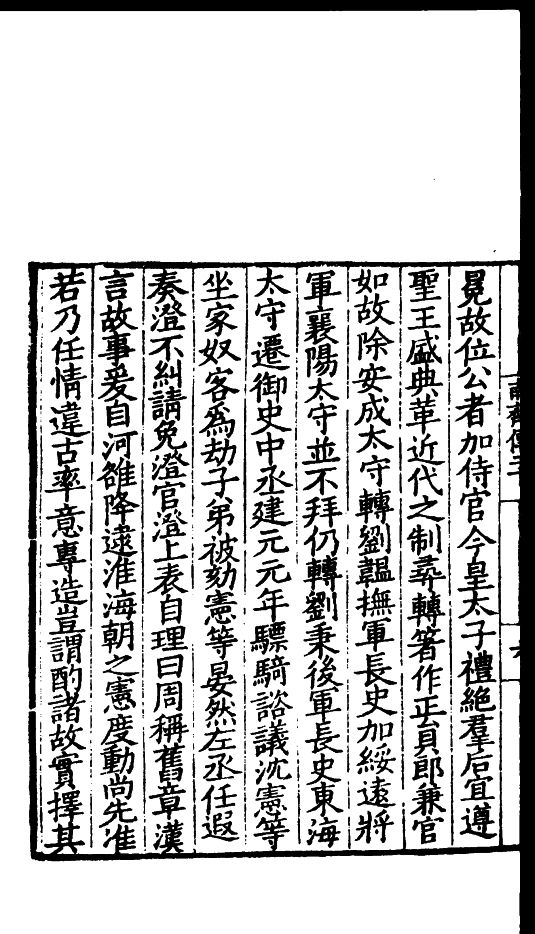 冕故位公者加侍官今皇太子禮絶羣后宜遵
聖王盛典革近代之制尋轉著作正貟郎兼官
如故除安成太守轉劉韞撫軍長史加綏逺將
軍襄陽太守並不拜仍轉劉秉後軍長史東海
太守遷御史中丞建元元年驃騎諮議沈憲等
坐家奴客為劫子弟被劾憲等晏然左丞任遐
奏澄不糾請免澄官澄上表自理曰周稱舊章漢
言故事爰自河雒降逮淮海朝之憲度動尚先准
若乃任情違古率意專造豈謂酌諸故實擇其